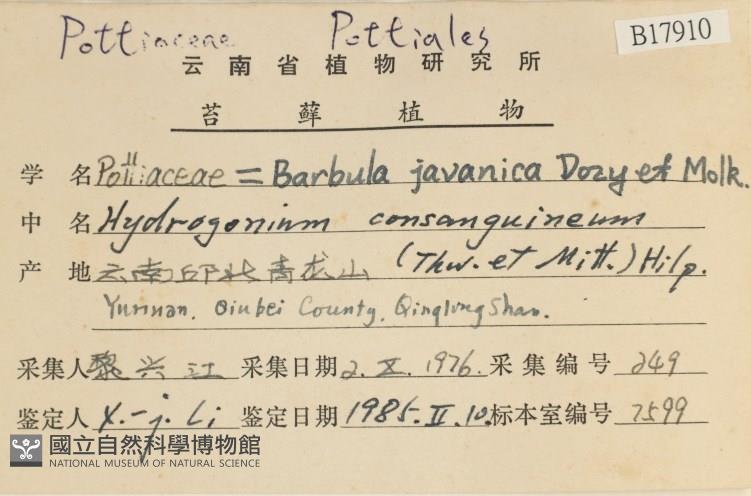 Pottiaceae Pottiales B17910
云南省植物研究所
苔藓植物
学名 Pottiaceae = Barbula javanica Dozy et Molk.
中名 Hydrogonium consanguineum
产地 云南邱北青龙山 (Thw. et Mitt.) Hilp.
Yunnan. Qiubei County. Qinglong Shan.
采集人 黎兴江 采集日期 2. X. 1976. 采集编号 249
鉴定人 X.-j. Li 鉴定日期 1985. II. 10. 标本室编号 7599
國立自然科學博物館
NATIONAL MUSEUM OF NATURAL SCIENCE